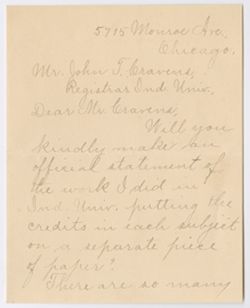 5715 Monroe Ave.,
Chicago.
Mr. John T. Cravens,
Registrar Ind. Univ.
Dear Mr. Cravens,
Will you
kindly make an
official statement of
the work I did in
Ind. Univ. putting the
credits in each subject
on a separate piece
of paper?
There are so many